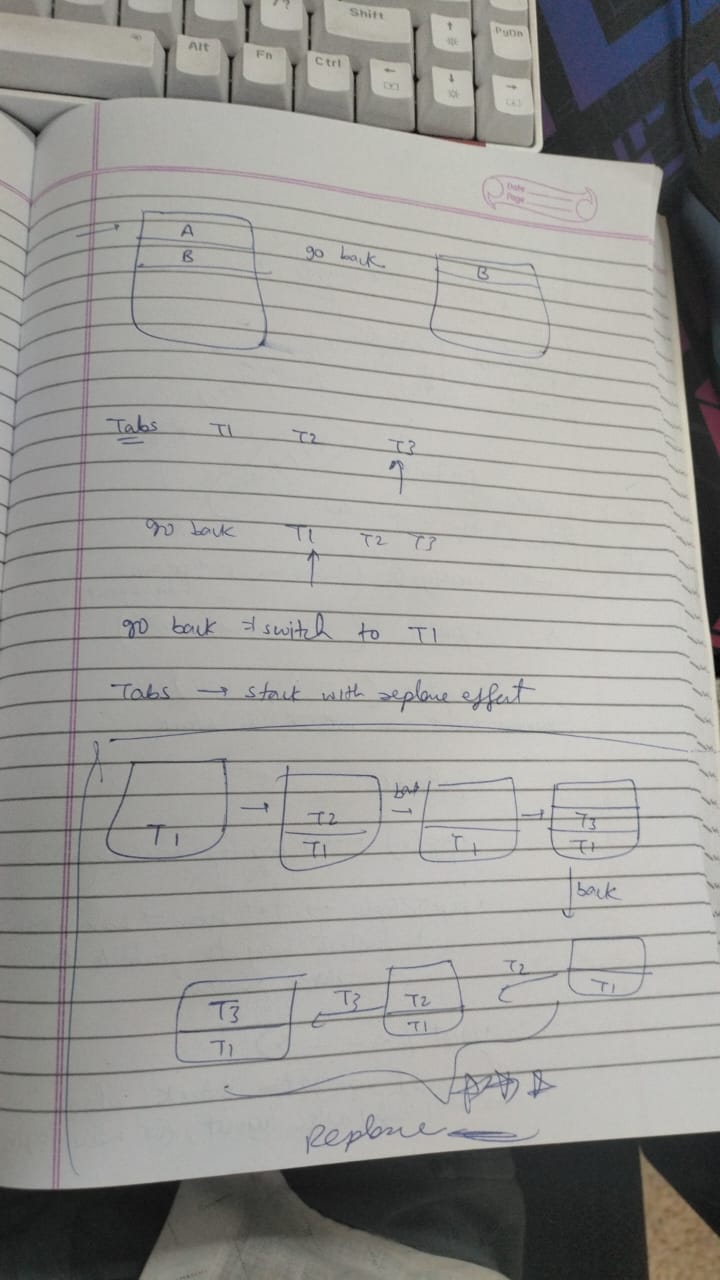 Shift
PgDn
Alt
Fn
Ctrl
Date
Page
A
B
go back
B
Tabs T1 T2 T3
go back T1 T2 T3
go back ⇒ switch to T1
Tabs → stack with replace effect
T1
T2
T1
back
T1
T3
T1
back
T1
T2
T2
T1
T3
T3
T1
Replace